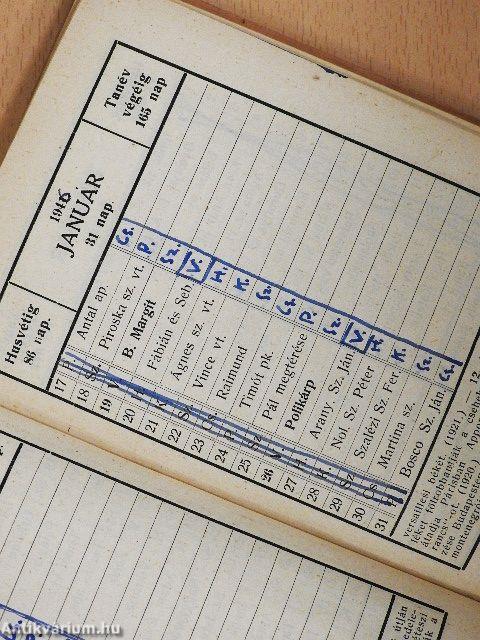 Husvétig
86 nap.
1946
JANUÁR
31 nap.
Tanév
végéig
165 nap
17 Antal ap. Cs.
18 Piroska sz. vt. P.
19 B. Margit Sz.
20 Fábián és Seb. V.
21 Ágnes sz. vt. H.
22 Vince vt. K.
23 Raimund Sz.
24 Timót pk. Cs.
25 Pál megférése P.
26 Polikárp Sz.
27 Arany. Sz. Ján. V.
28 Nol. Sz. Péter H.
29 Szalézi Sz. Fer. K.
30 Martina sz. Sz.
31 Bosco Sz. Ján. Cs.
versaillesi békét. (1921.)
átadja Párisban Appo
rancs"-ot. (1920.)
zése Budapesten
Antikvarium.hu